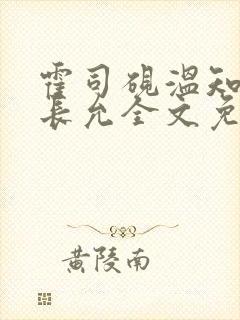 霍司砚温知
长允全文免
黄陵南